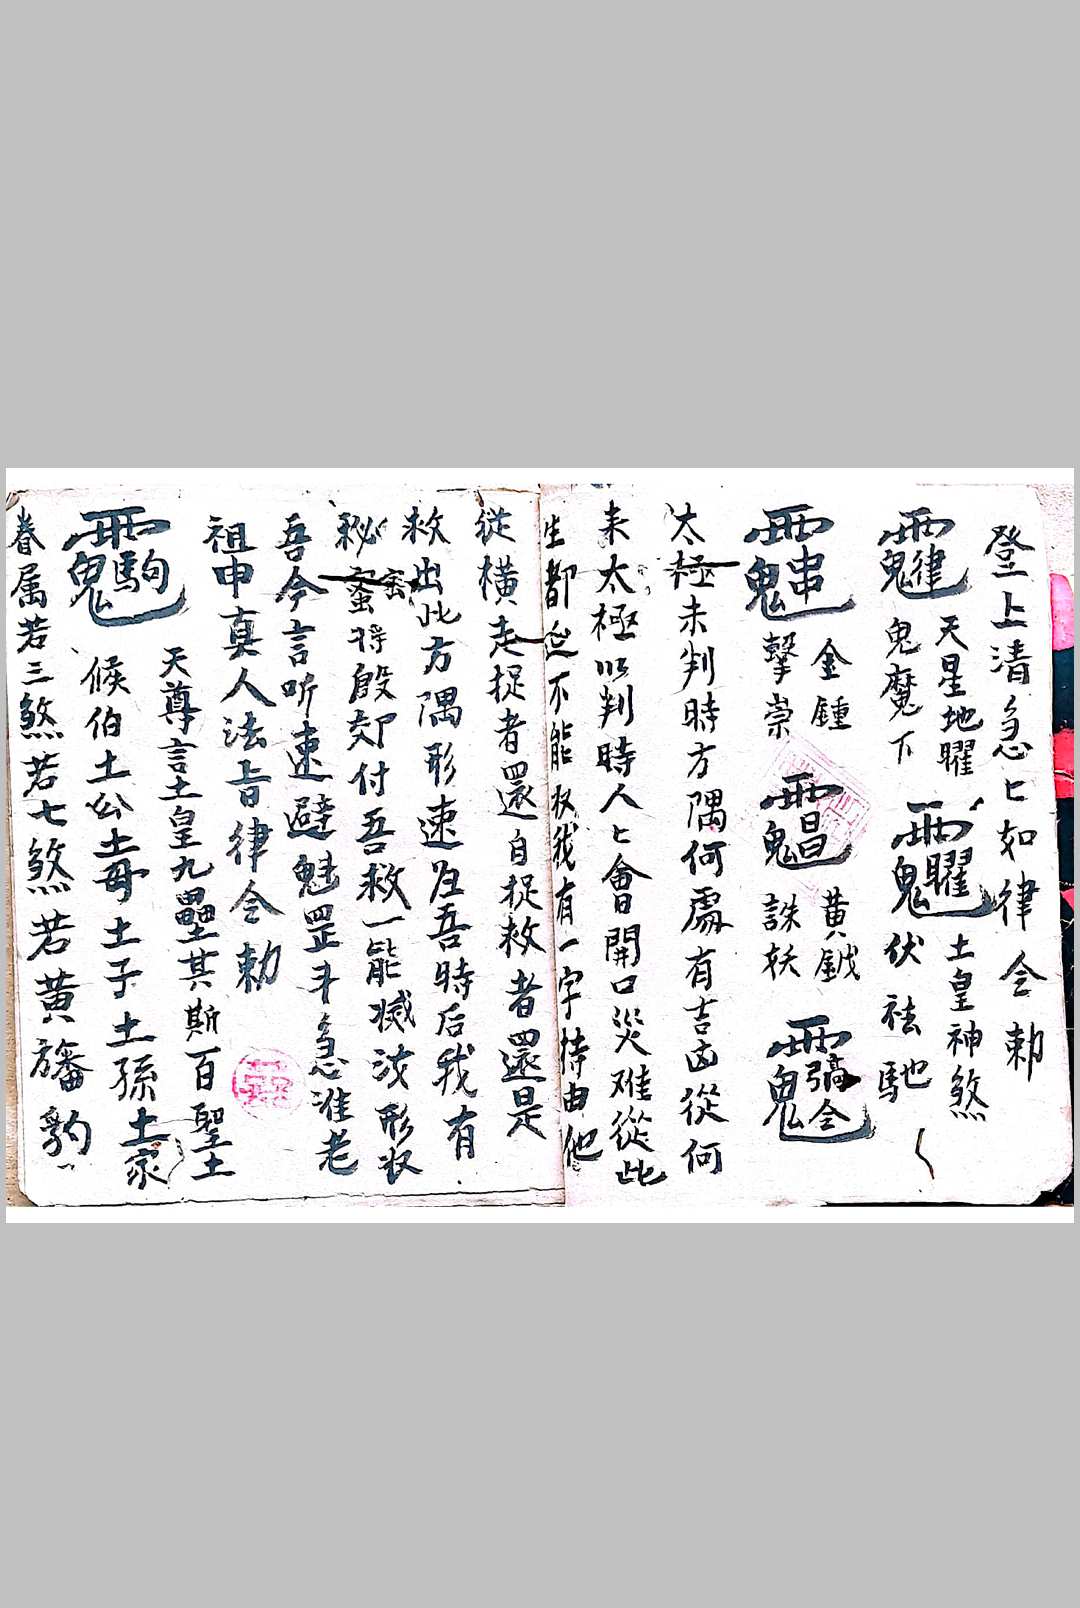 登上清急匕如律令勅
天星地曜 土皇神煞
鬼魔下 伏祛馳
金鍾 黄鉞
擊崇 誅妖
太極未判時方隅何處有吉凶從何
来太極以判時人匕會開口災难從此
生都迯不能奴我有一字特由他
從横走捉者還自捉救者還是
救出此方隅形速在吾時后我有
秘蜜将殷郊付吾救一能减法形状
吾今言听速避魅罡斗急准老
祖申真人法旨律令勅
天尊言土皇九壘其斯百聖土
候伯土公土毋土子土孫土家
眷属若三煞若七煞若黄旛豹